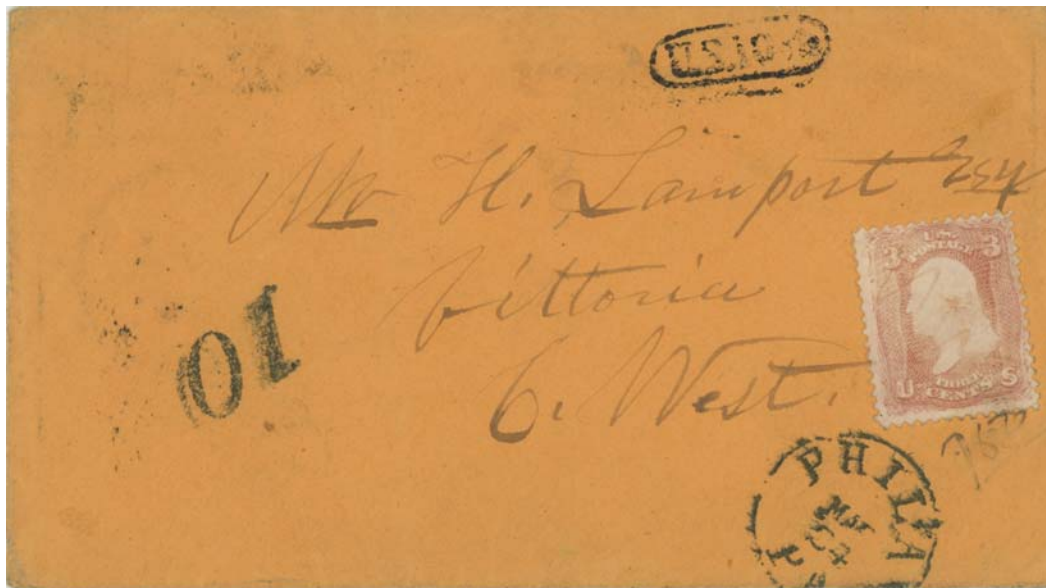 U.S. 10 cts
Mr H. Lamport Esq
Vittoria
C. West.
10
U.S.
POSTAGE
3 3
THREE
U CENTS S
PHILA
PA